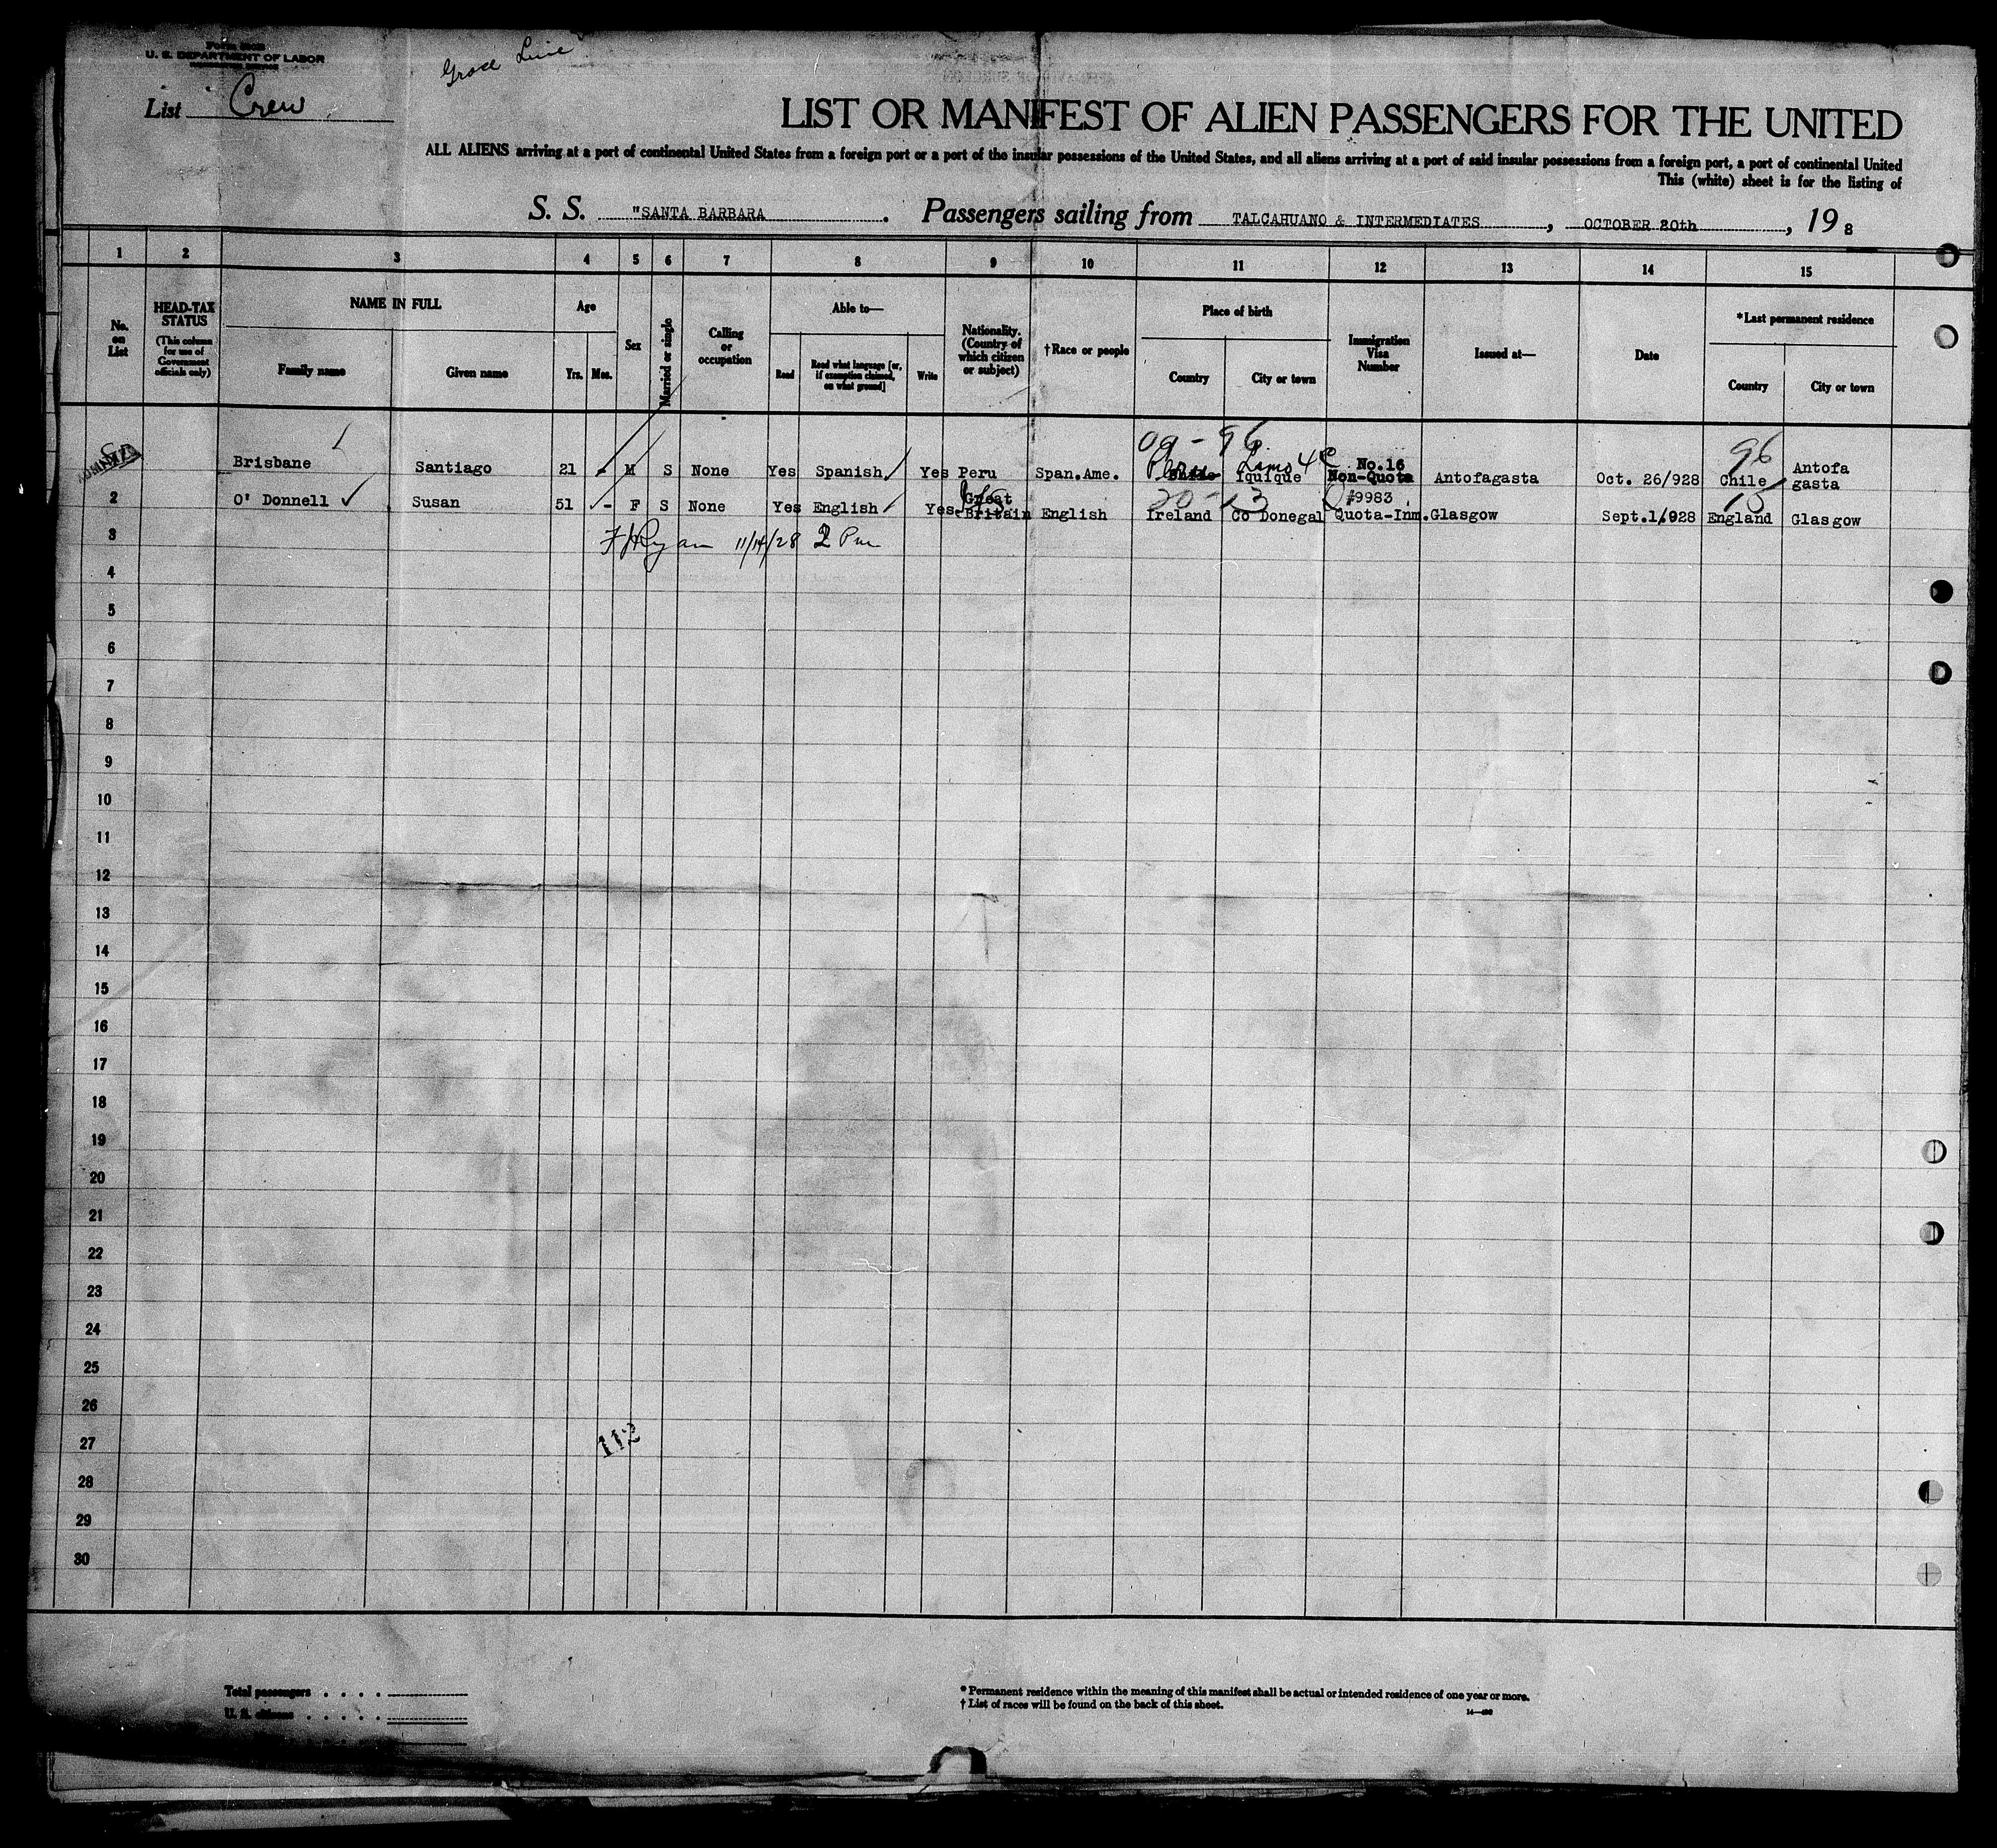 U. S. DEPARTMENT OF LABOR
Grace Line
List Crew
LIST OR MANIFEST OF ALIEN PASSENGERS FOR THE UNITED
ALL ALIENS arriving at a port of continental United States from a foreign port or a port of the insular possessions of the United States, and all aliens arriving at a port of said insular possessions from a foreign port, a port of continental United
This (white) sheet is for the listing of
S. S. "SANTA BARBARA . Passengers sailing from TALCAHUANO & INTERMEDIATES , OCTOBER 20th , 19 8
1 2 3 4 5 6 7 8 9 10 11 12 13 14 15
No. on List
HEAD-TAX STATUS
(This column for use of Government officials only)
NAME IN FULL
Family name Given name
Age
Yrs. Mos.
Sex
Married or single
Calling or occupation
Able to—
Read Read what language [or, if exemption claimed, on what ground] Write
Nationality. (Country of which citizen or subject)
†Race or people
Place of birth
Country City or town
Immigration Visa Number
Issued at—
Date
*Last permanent residence
Country City or town
09-96
Brisbane Santiago 21 - M S None Yes Spanish Yes Peru Span.Ame. Peru Iquique No.16 Non-Quota Antofagasta Oct. 26/928 96 Chile Antofa gasta
2 O' Donnell Susan 51 - F S None Yes English Yes Great Britain English Ireland Co Donegal #9983 Quota-Imm. Glasgow Sept.1.928 15 England Glasgow
3 F J Ryan 11/14/28 2 Pm
4
5
6
7
8
9
10
11
12
13
14
15
16
17
18
19
20
21
22
23
24
25
26
27
112
28
29
30
Total passengers . . . .
U. S. citizens . . . . .
* Permanent residence within the meaning of this manifest shall be actual or intended residence of one year or more.
† List of races will be found on the back of this sheet.